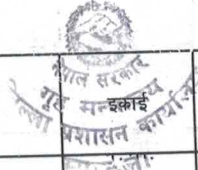 नेपाल सरकार
गृह मन्त्रालय
इकाई
जिल्ला प्रशासन कार्यालय